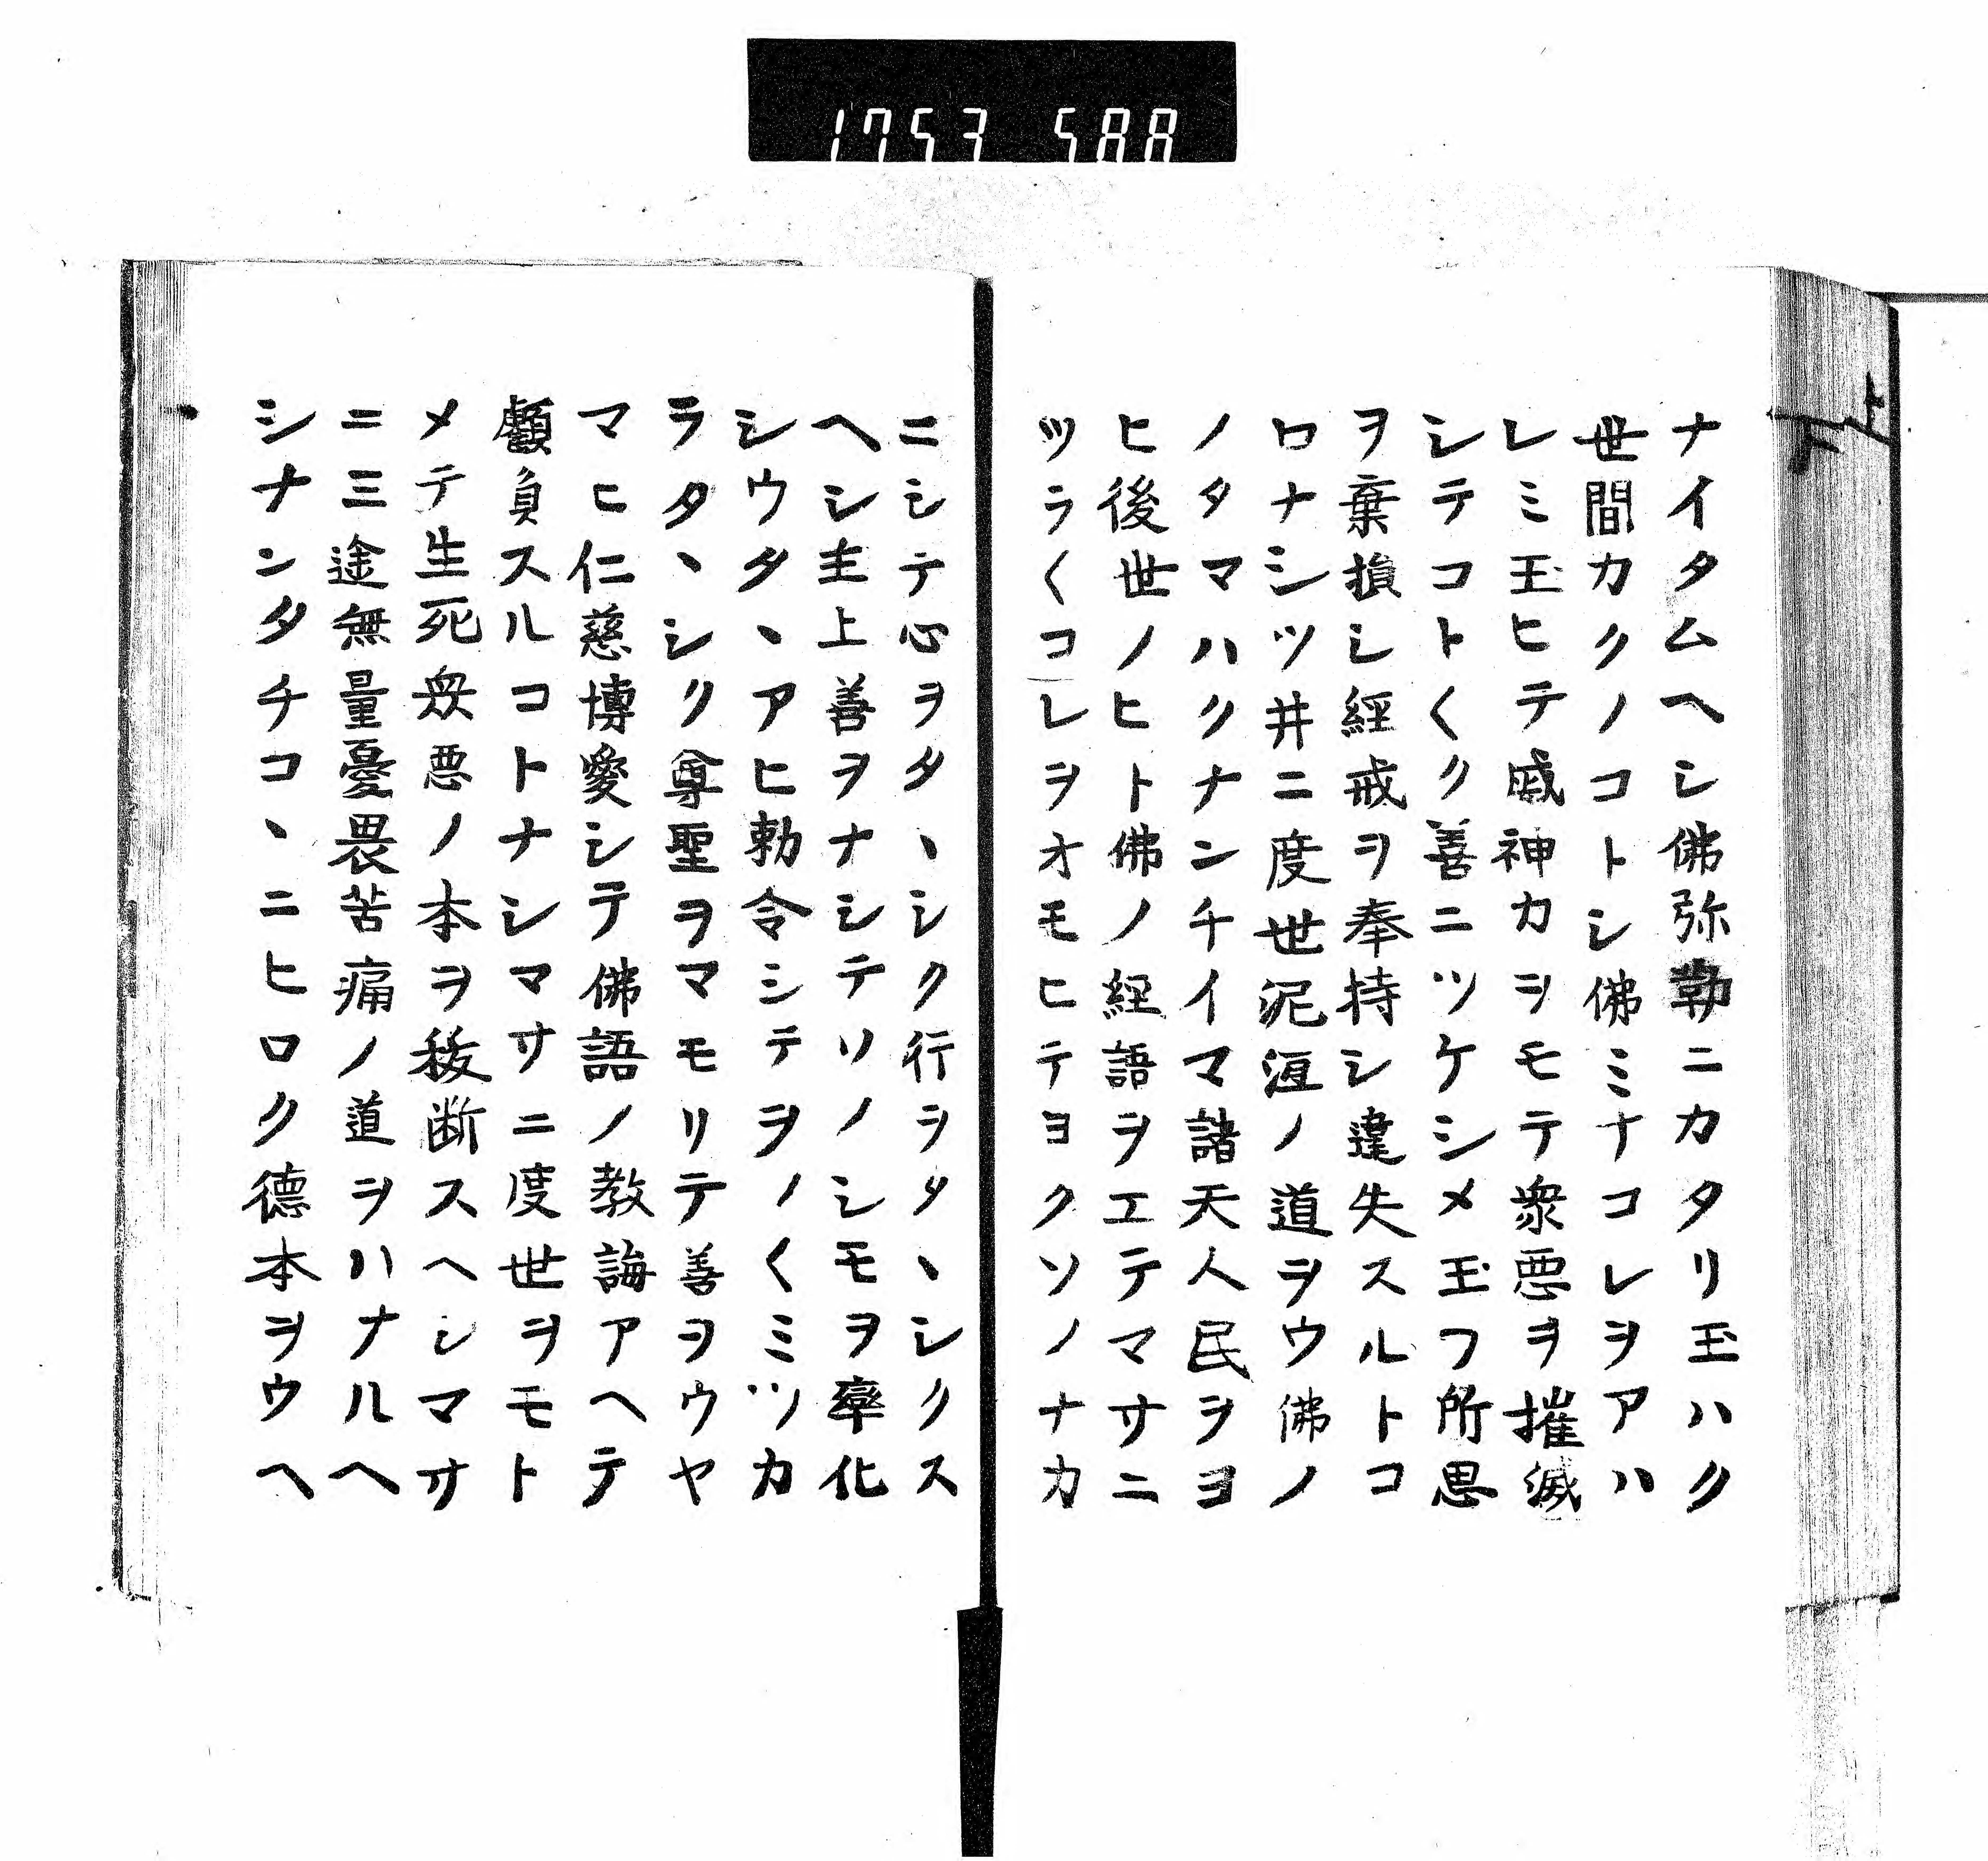 1753 588
上
下
ナイタムヘシ佛弥勒ニカタリ玉ハク
世間カクノコトシ佛ミナコレヲアハ
レミ玉ヒテ威神カヲモテ衆悪ヲ摧滅
シテコト〱ク善ニツケシメ玉フ所思
ヲ棄損シ経戒ヲ奉持シ違失スルトコ
ロナシツ井ニ度世泥洹ノ道ヲウ佛ノ
ノタマハクナンチイマ諸天人民ヲヨ
ヒ後世ノヒト佛ノ経語ヲエテマサニ
ツラ〱コレヲオモヒテヨクソノナカ
ニシテ心ヲタヽシク行ヲタヽシクス
ヘシ主上善ヲナシテソノシモヲ率化
シウタヽアヒ勅令シテヲノ〱ミツカ
ラタヽシク尊聖ヲマモリテ善ヲウヤ
マヒ仁慈博愛シテ佛語ノ教誨アヘテ
虧負スルコトナシマサニ度世ヲモト
メテ生死衆悪ノ本ヲ抜断スヘシマサ
ニ三途無量憂畏苦痛ノ道ヲハナルヘ
シナンタチコヽニヒロク徳本ヲウヘ